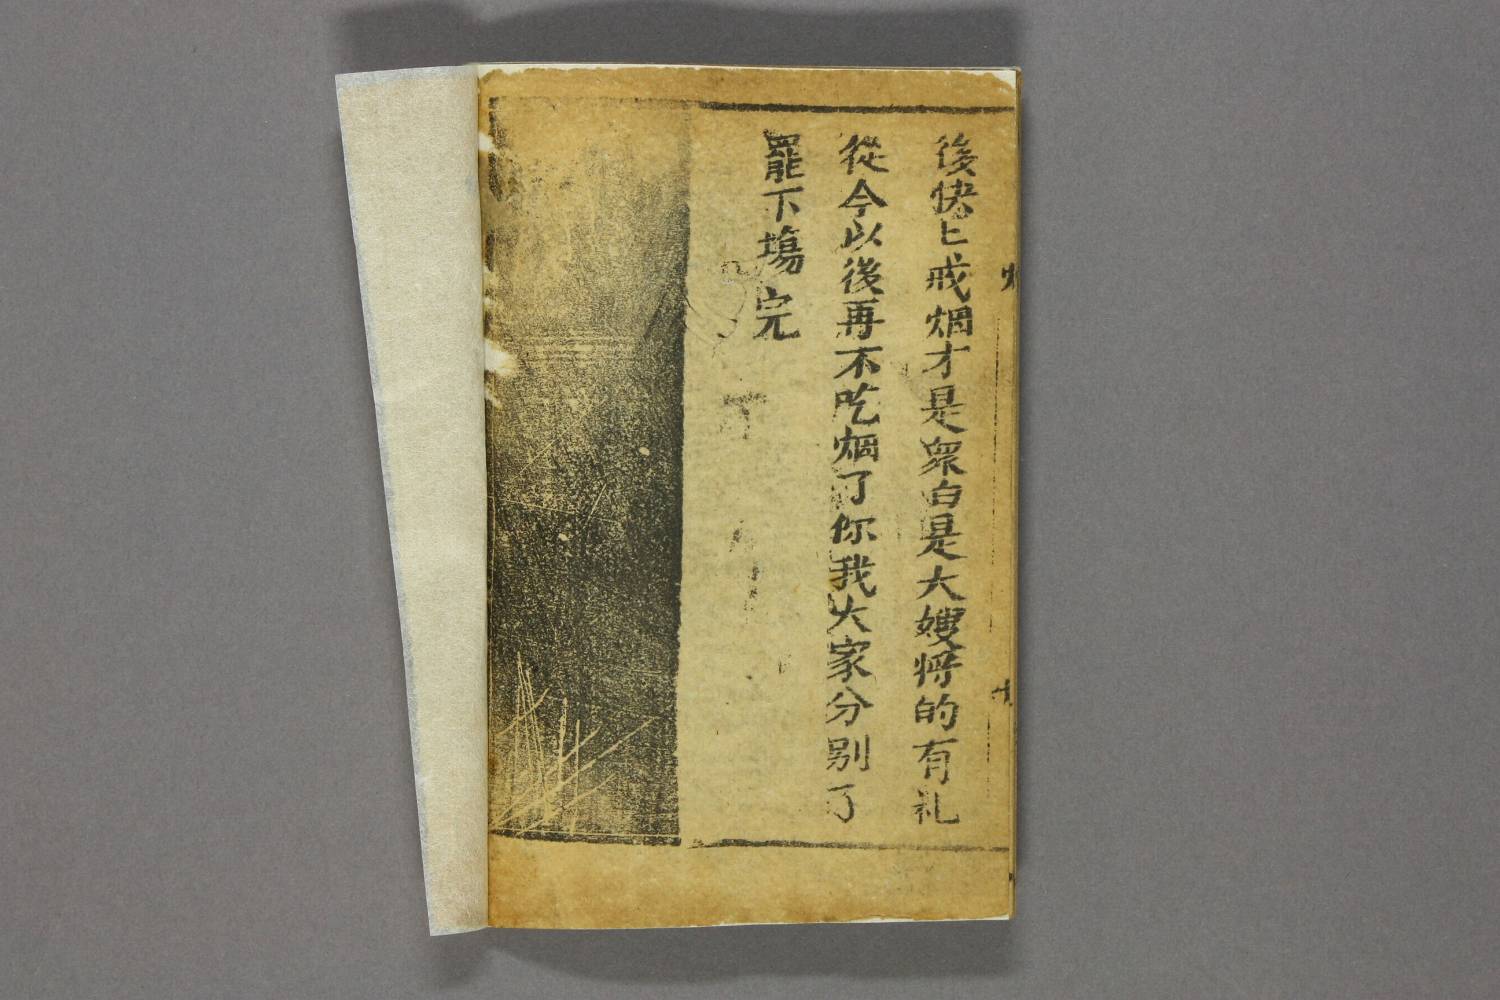 後快匕戒烟才是衆白是大嫂將的有礼
從今以後再不吃烟了你我大家分别了
罷下塲完